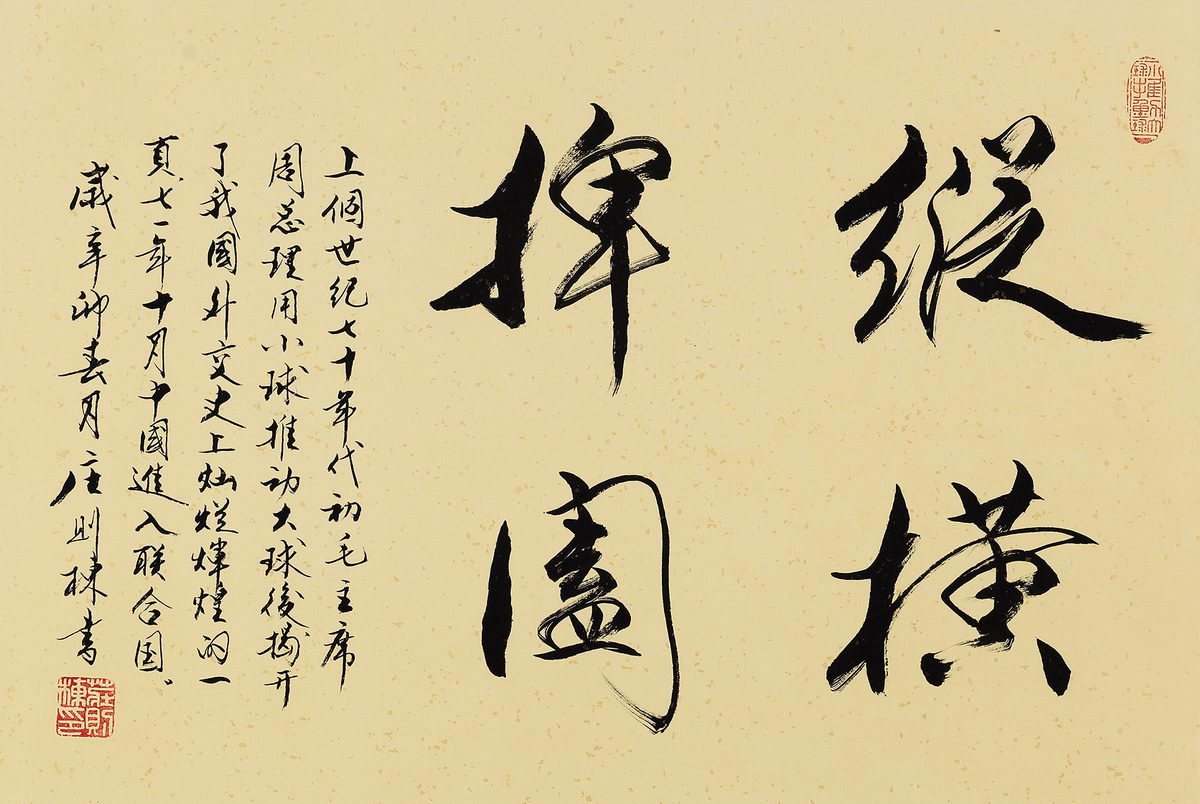 縱橫
捭闔
上個世纪七十年代初毛主席
周总理用小球推动大球後揭开
了我國外交史上灿烂輝煌的一
頁.七一年十月中國進入联合国。
歲辛卯春月庄则棟書
莊則棟印